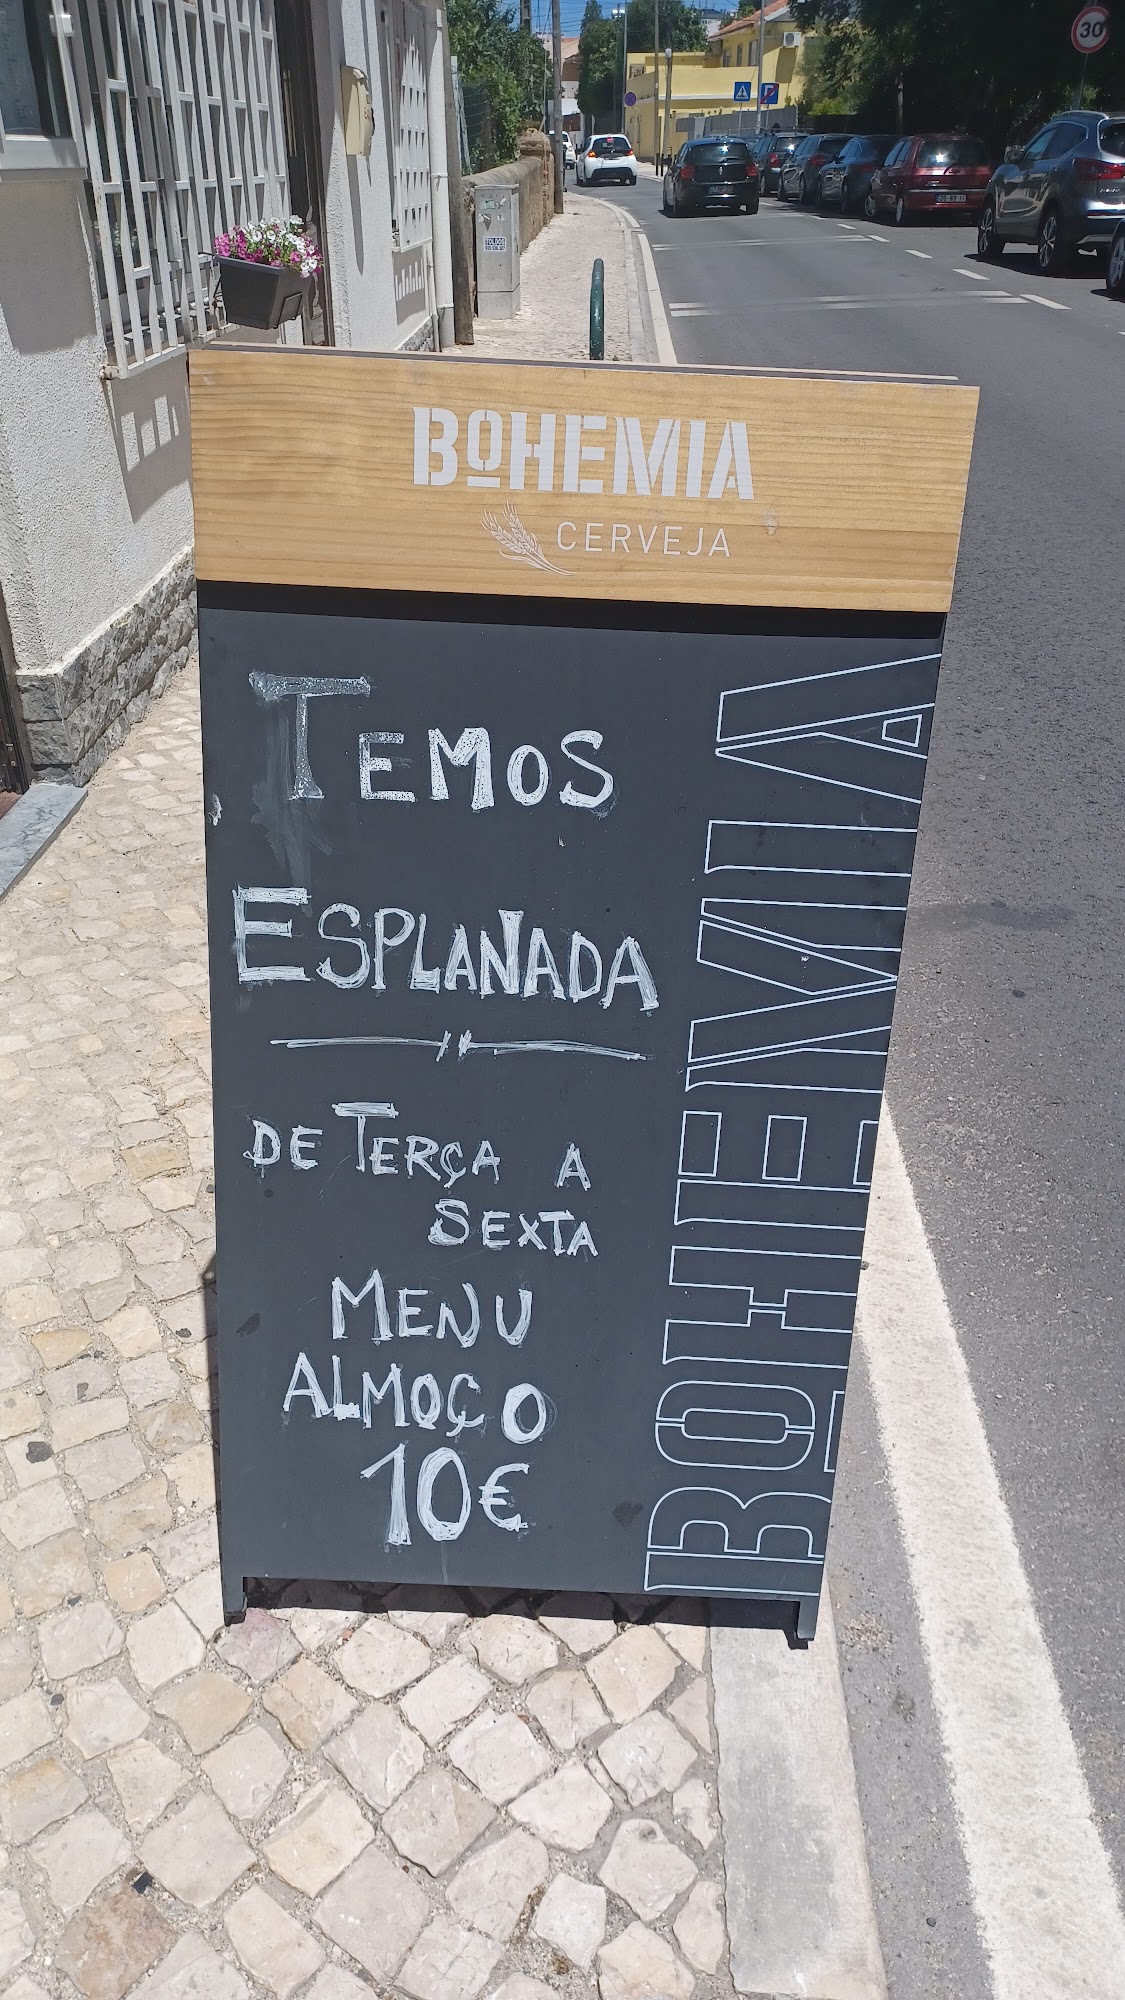 30
TOLDOS
BOHEMIA
CERVEJA
TEMOS
ESPLANADA
DE TERÇA A
SEXTA
MENU
ALMOÇO
10€
BOHEMIA